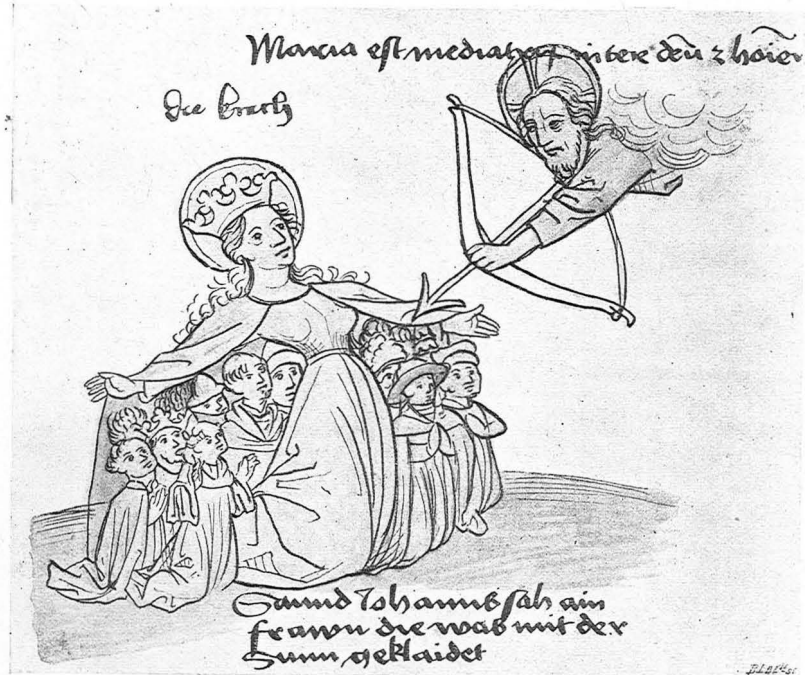 Maria est mediatrix inter deū z hoīes
die
Sannd Johanns sah ain
frawn die was mit der
Sunn geklaidet